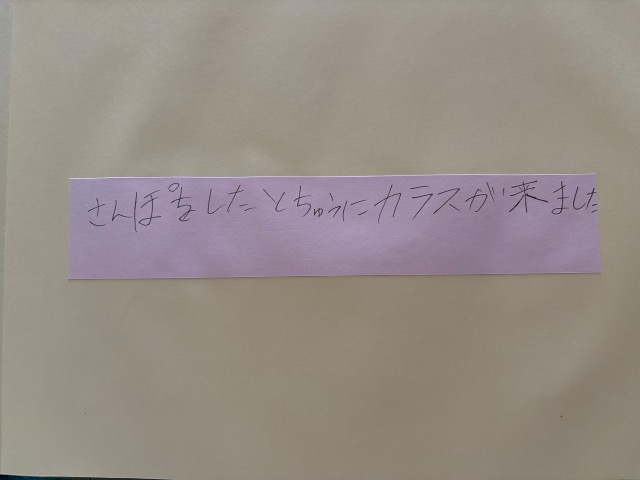 さんぽをしたとちゅうにカラスが来ました